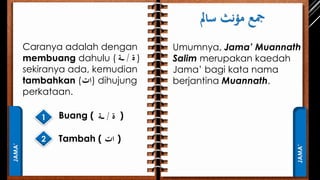 Caranya adalah dengan
membuang dahulu ( ة / ـة )
sekiranya ada, kemudian
tambahkan (ات) dihujung
perkataan.
1 Buang ( ة / ـة )
2 Tambah ( ات )
JAMA'
جمع مؤنث سالم
Umumnya, Jama' Muannath
Salim merupakan kaedah
Jama' bagi kata nama
berjantina Muannath.
JAMA'